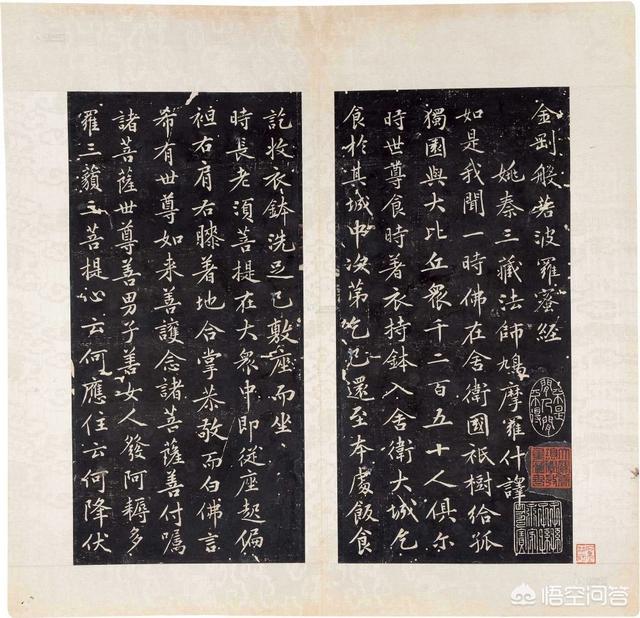 金剛般若波羅蜜經
姚秦三藏法師鳩摩羅什譯
如是我聞一時佛在舍衛國祇樹給孤
獨園與大比丘眾千二百五十人俱尔
時世尊食時著衣持鉢入舍衛大城乞
食於其城中次第乞已還至本處飯食
訖收衣鉢洗足已敷座而坐
時長老須菩提在大眾中即從座起偏
袒右肩右膝著地合掌恭敬而白佛言
希有世尊如来善護念諸菩薩善付囑
諸菩薩世尊善男子善女人發阿耨多
羅三藐三菩提心云何應住云何降伏
悟空问答